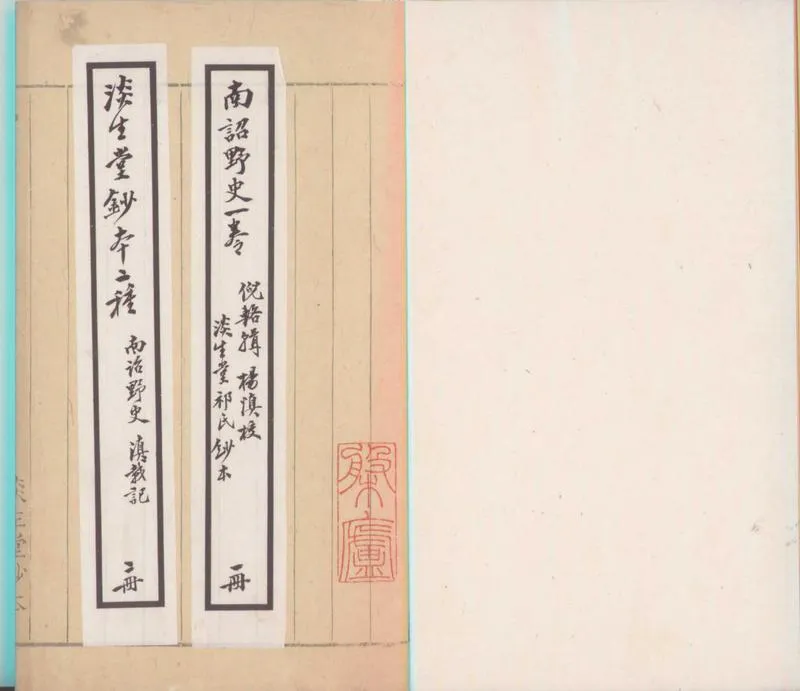 南詔野史一卷
倪輅輯 楊慎校
淡生堂祁氏鈔本
一冊
淡生堂鈔本二種
南詔野史 滇載記
二冊
淡生堂抄本